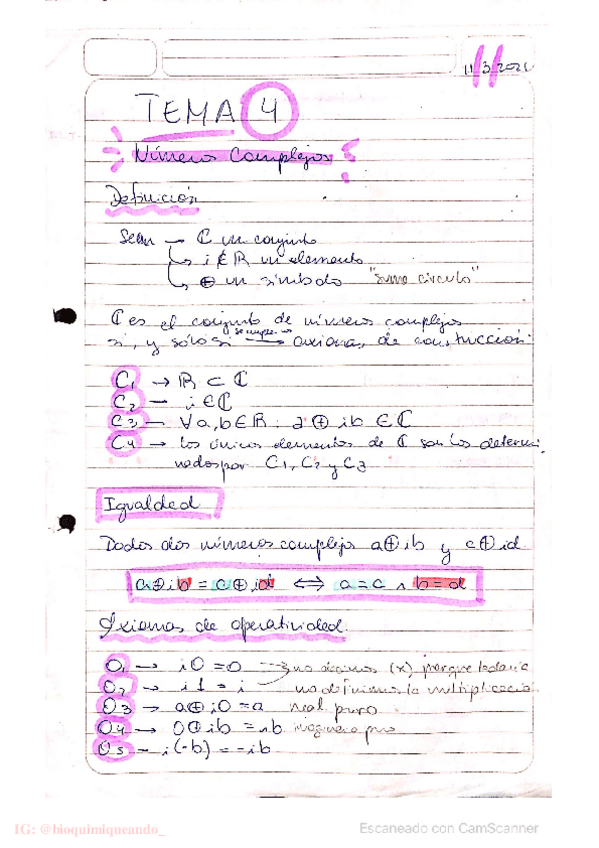 11/3/2021
TEMA 4
Números Complejos
Definición
Sean → ℂ un conjunto
↳ i ∉ ℝ un elemento
↳ ⊕ un símbolo "suma círculo"
ℂ es el conjunto de números complejos
si, y sólo si → axiomas de construcción:
C1 → ℝ ⊂ ℂ
C2 — i ∈ ℂ
C3 — ∀ a, b ∈ ℝ : a ⊕ ib ∈ ℂ
C4 → los únicos elementos de ℂ son los determi-
nados por C1, C2 y C3
Igualdad
Dados dos números complejo a⊕ib y c⊕id
a⊕ib = c⊕id ⟺ a=c ∧ b=d
Axiomas de operatividad.
O1 → i0=0 → no decimos (x) porque todavía
O2 → i1=i no definimos la multiplicación.
O3 → a⊕i0=a real puro
O4 → 0⊕ib=ib imaginario puro
O5 — i(-b)=-ib
IG: @bioquimiqueando_
Escaneado con CamScanner